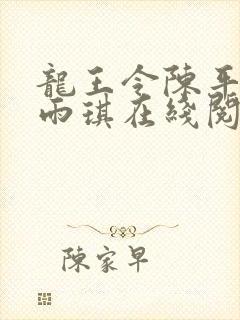 龍王令陳平
雨琪在綫閱
陳家早